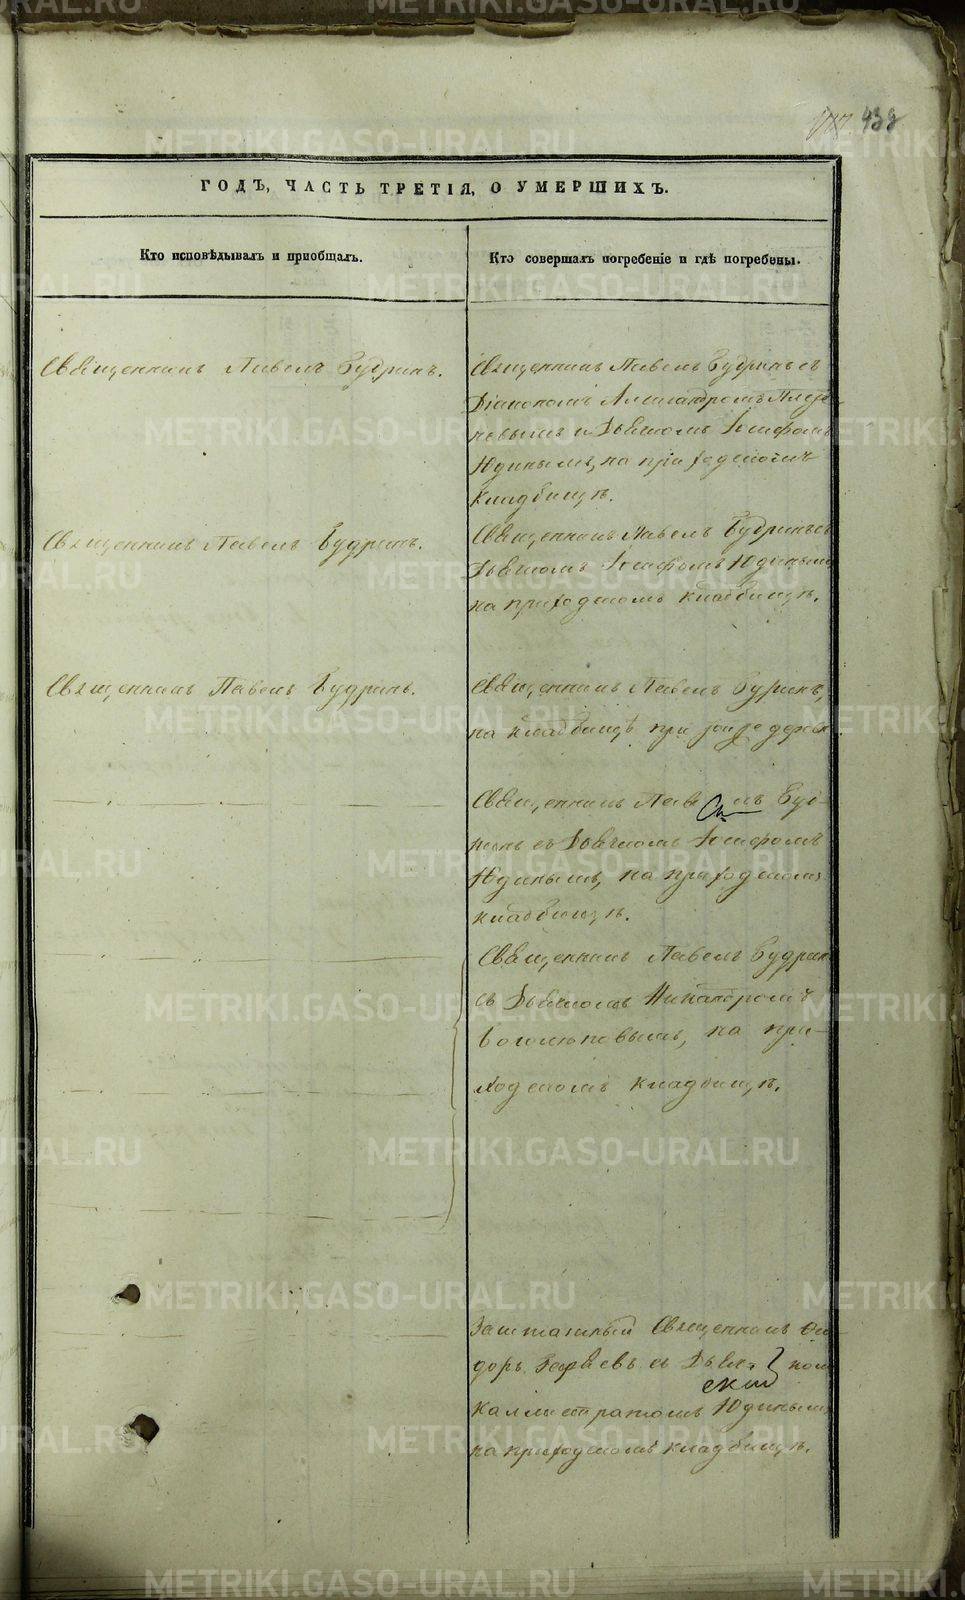 438
ГОДЪ, ЧАСТЬ ТРЕТІЯ, О УМЕРШИХЪ.
Кто исповѣдывалъ и пріобщалъ.
Кто совершалъ погребеніе и гдѣ погребены.
Священникъ Павелъ Будринъ.
Священникъ Павелъ Будринъ съ
Діакономъ Александромъ
и Дьячкомъ Іосифомъ
Юдинымъ, на приходскомъ
кладбищѣ.
Священникъ Павелъ Будринъ.
Священникъ Павелъ Будринъ съ
Дьячкомъ Іосифомъ Юдинымъ
на приходскомъ кладбищѣ.
Священникъ Павелъ Будринъ.
Священникъ Павелъ Будринъ,
на кладбищѣ при
Священникъ Павелъ Буд-
ринъ съ Дьячкомъ Іосифомъ
Юдинымъ, на приходскомъ
кладбищѣ.
Священникъ Павелъ Будринъ
съ Дьячкомъ Никандромъ
на при-
ходскомъ кладбищѣ.
Заштатный Священникъ Ѳео-
доръ съ
Каллистратомъ Юдинымъ
на приходскомъ кладбищѣ.
METRIKI.GASO-URAL.RU